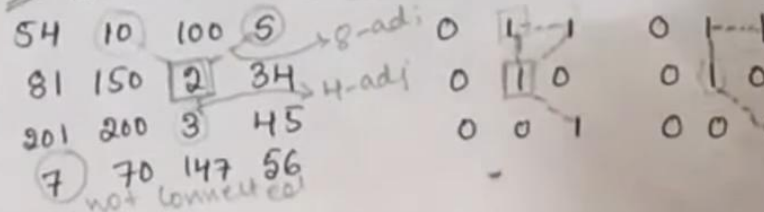 54 10 100 5 8-adj 0 1 1 0 1 1
81 150 2 34 4-adj 0 1 0 0 1 0
201 200 3 45 0 0 1 0 0
7 70 147 56
not connected